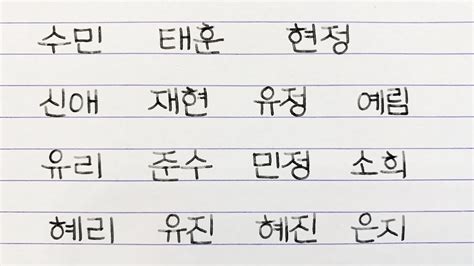 수민 태훈 현정
신애 재현 유정 예림
유리 준수 민정 소희
혜리 유진 혜진 은지